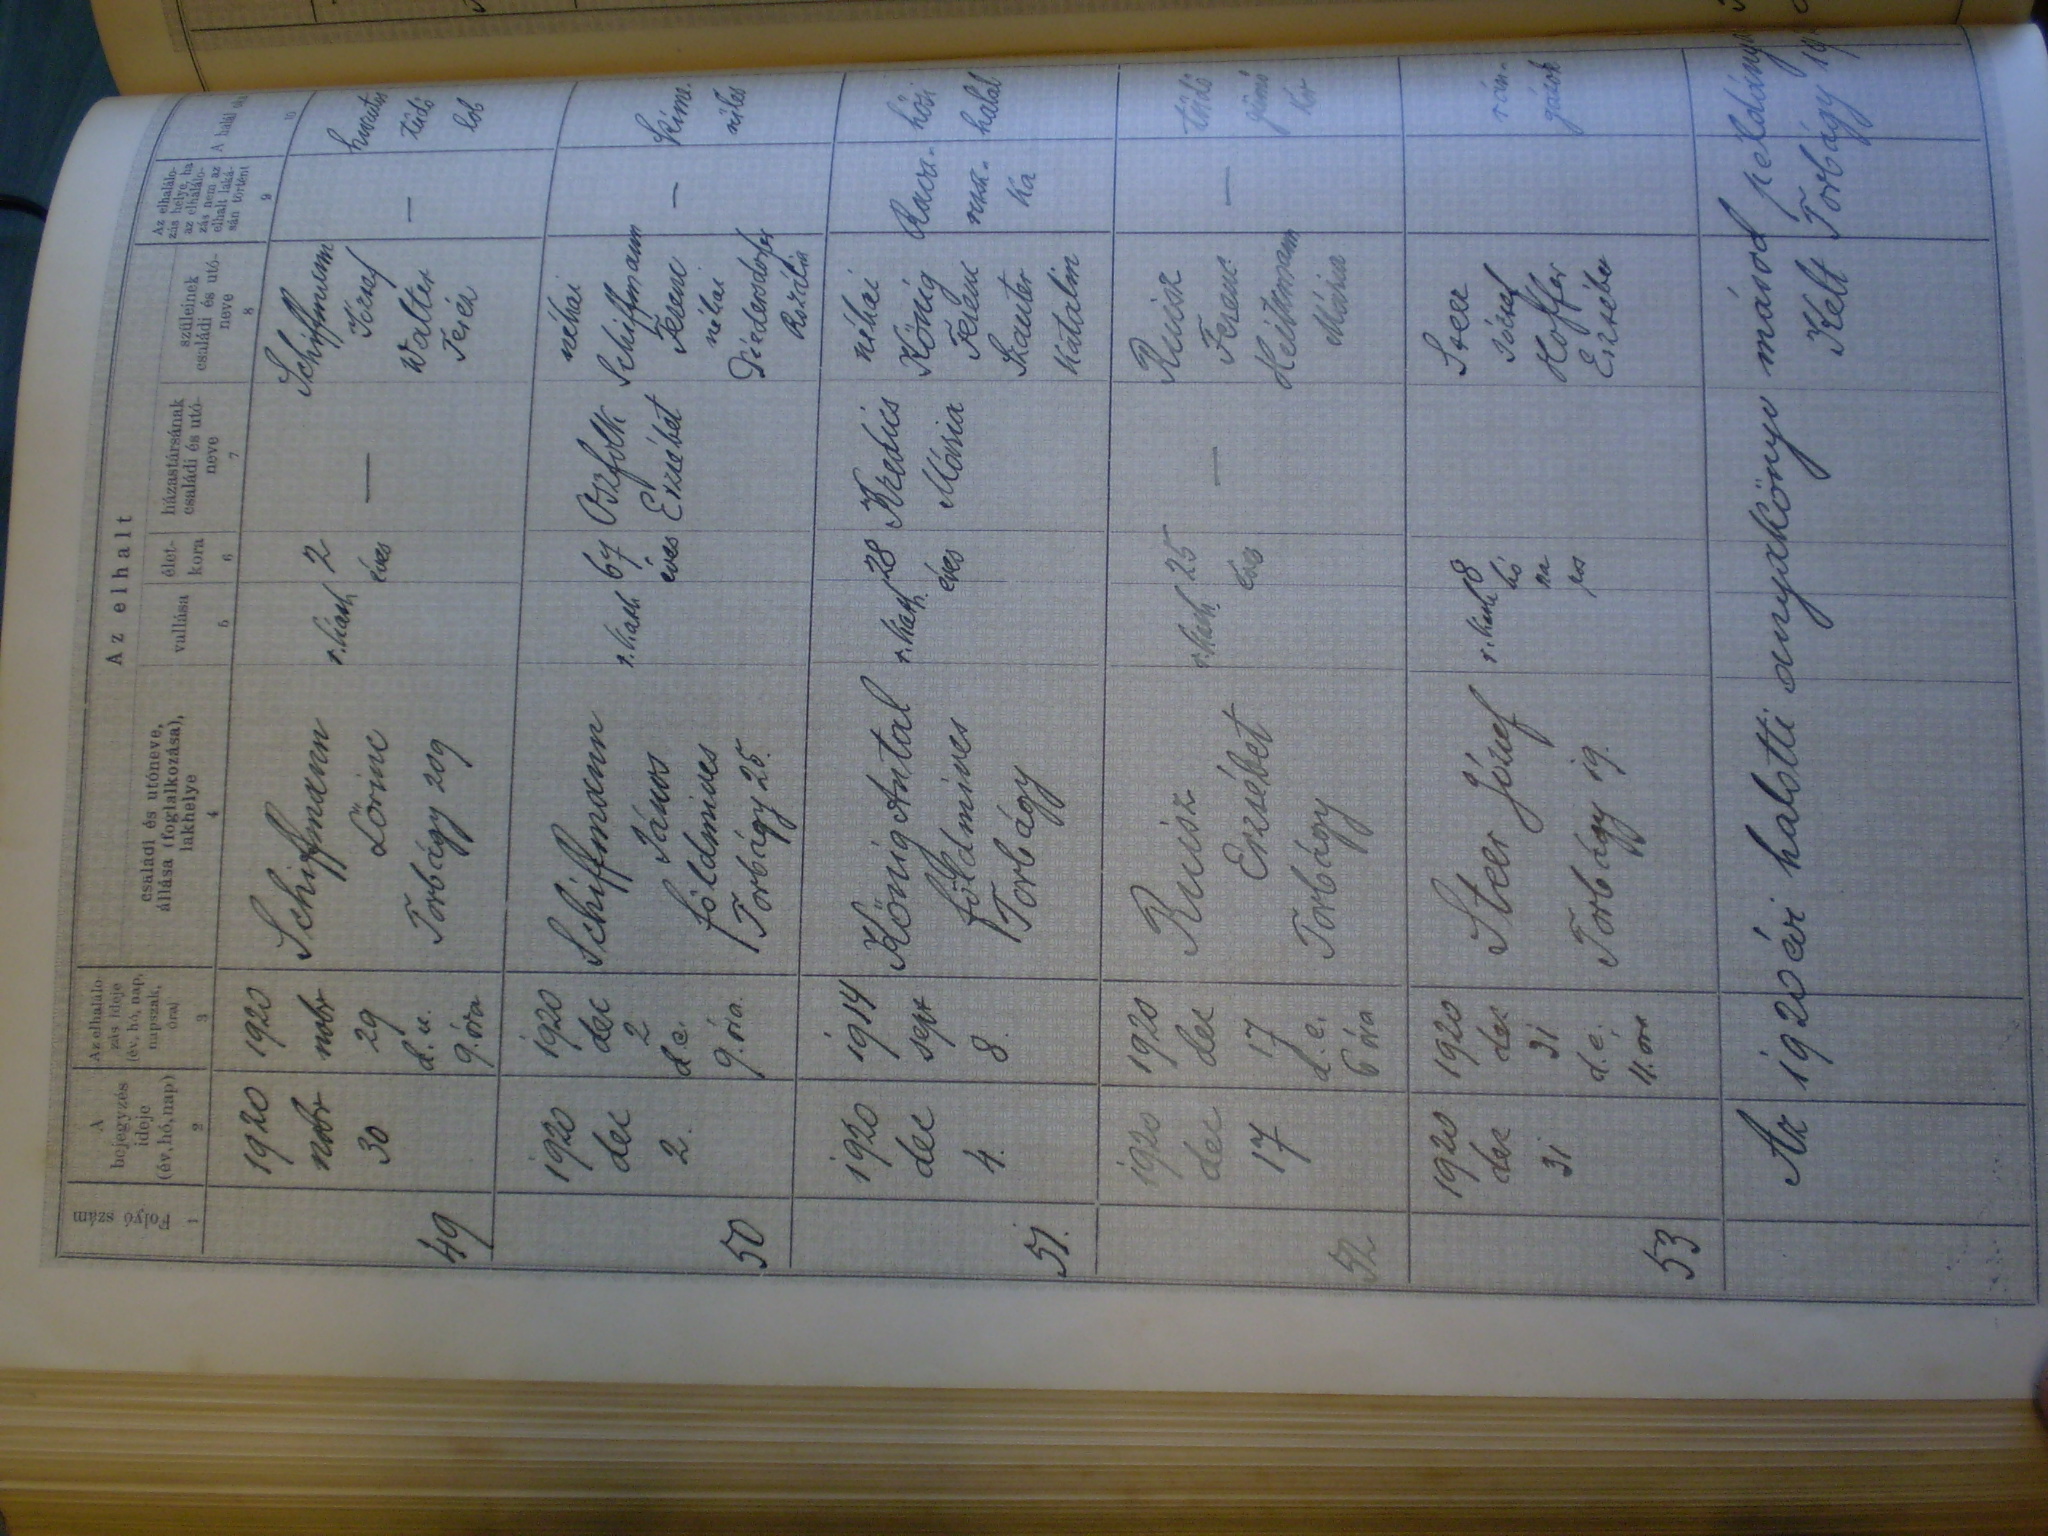 Az elhalt
Folyó szám
A bejegyzés ideje (év, hó, nap)
Az elhalálo-
zás ideje
(év, hó, nap,
napszak,
óra)
családi és utóneve,
állása (foglalkozása),
lakhelye
vallása
élet-
kora
házastársának
családi és utó-
neve
szüleinek
családi és utó-
neve
Az elhalálo-
zás helye, ha
az elhalálo-
zás nem az
elhalt laká-
sán történt
A halál
1 2 3 4 5 6 7 8 9 10
49
1920
nobr
30
1920
nobr
29
d.u.
9. óra
Schiffmann
Lörinc
Torbágy 209
r. kath
2
éves
—
Schiffmann
József
Walter
Teréz
—
tüdő
lob
50
1920
dec
2.
1920
dec
2
d.e.
9. óra.
Schiffmann
János
földmives
Torbágy 25.
r. kath
67
éves
Erzsébet
néhai
Schiffmann
Ferenc
néhai
Diedersdorfer
Rozália
—
51.
1920
dec
4.
1914
sept
8.
König Antal
földmives
Torbágy
r. kath.
28
éves
Mária
néhai
König
Ferenc
Szauter
Katalin
Rava-
rusz-
ka
hősi
halál
52
1920
dec
17
1920
dec
17
d.e.
6 óra
Ruisz
Erzsébet
Torbágy
r. kath.
25
éves
—
Ruisz
Ferenc
Heitzmann
Mária
—
tüdő
gümő
kór
53
1920
dec
31
1920
dec
31
d.e.
11. óra
Steer József
Torbágy 19.
r. kath
8
hó
na
pos
Steer
József
Hoffer
Erzsébet
rán-
gások
Az 1920 évi halotti anyakönyv másod példánya
Kelt Torbágy